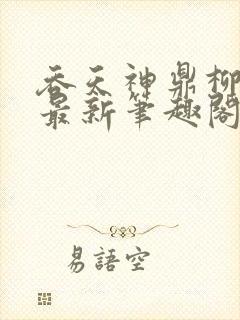 吞天神鼎柳
最新筆趣閣
易語空